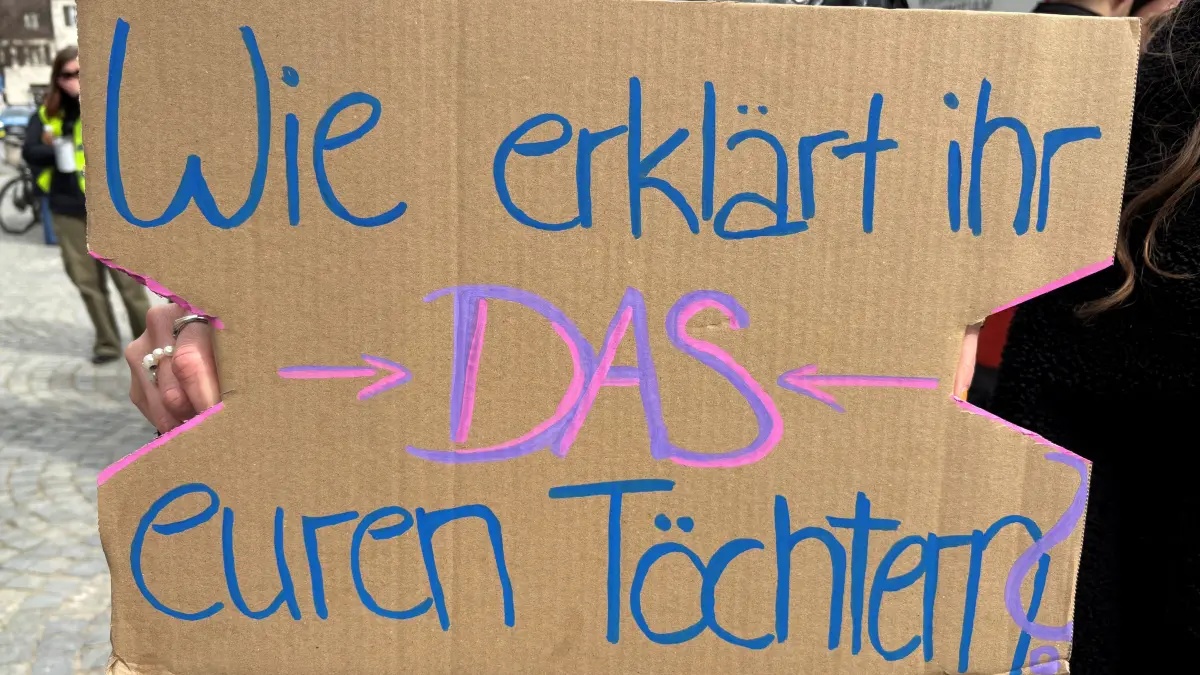 Wie erklärt ihr
→ DAS ←
euren Töchtern?